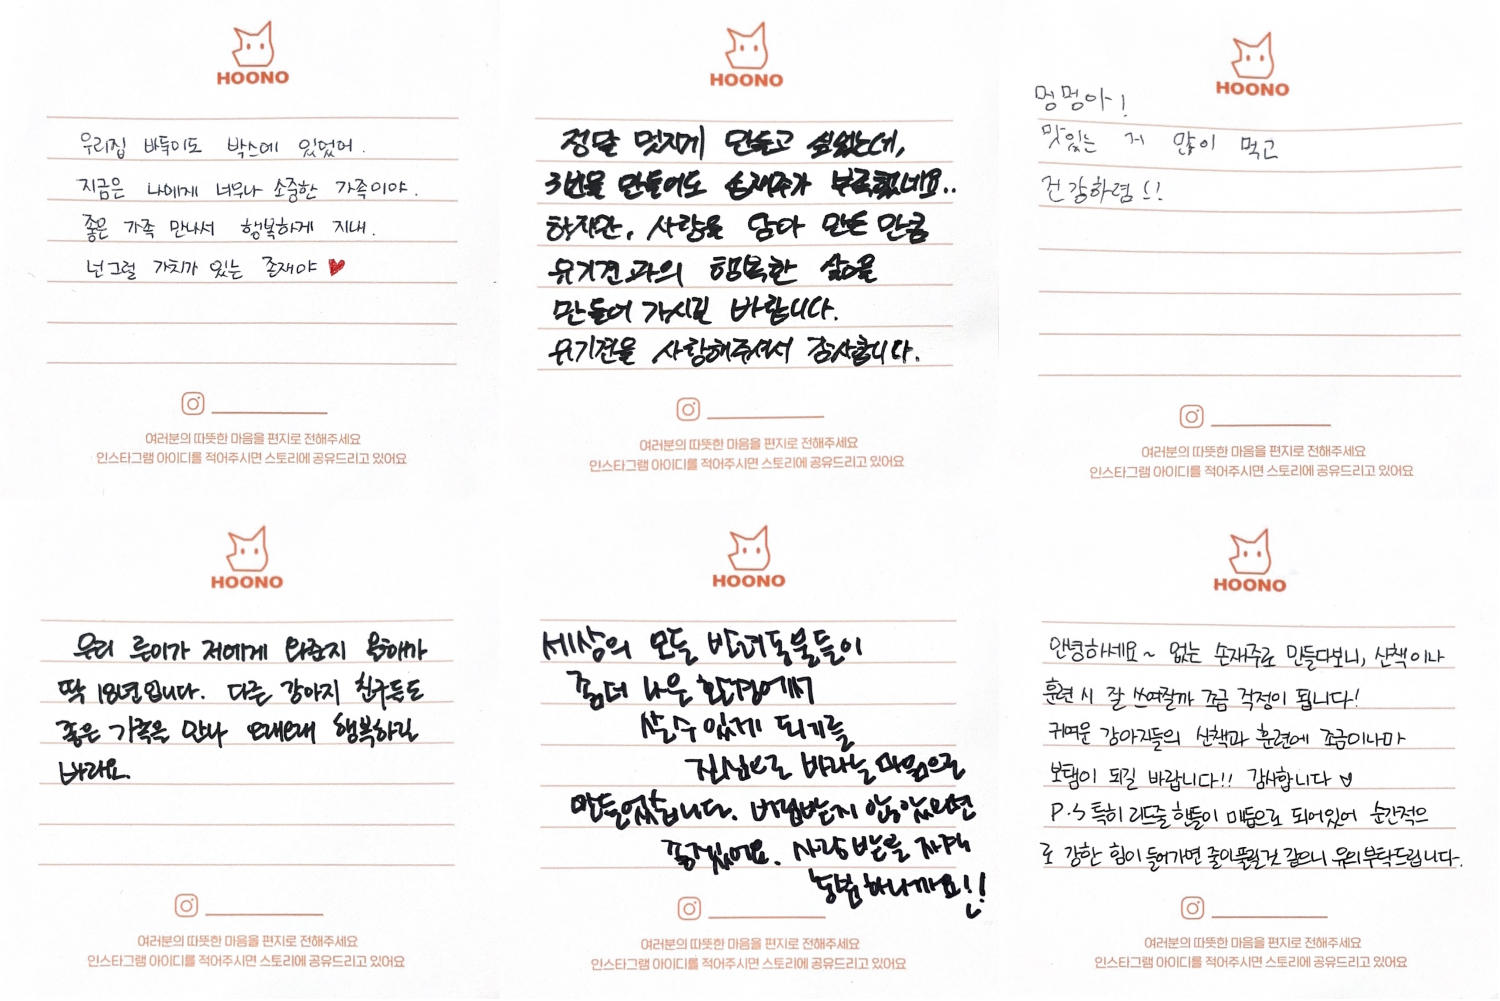 HOONO
우리집 바둑이도 박스에 있었어.
지금은 나에게 너무나 소중한 가족이야.
좋은 가족 만나서 행복하게 지내.
넌 그럴 가치가 있는 존재야
여러분의 따뜻한 마음을 편지로 전해주세요
인스타그램 아이디를 적어주시면 스토리에 공유드리고 있어요
HOONO
정말 멋지게 만들고 싶었는데,
3번을 만들어도 손재주가 부족했네요..
하지만, 사랑을 담아 만든 만큼
유기견과의 행복한 삶을
만들어 가시길 바랍니다.
유기견을 사랑해주셔서 감사합니다.
여러분의 따뜻한 마음을 편지로 전해주세요
인스타그램 아이디를 적어주시면 스토리에 공유드리고 있어요
HOONO
멍멍아!
맛있는 거 많이 먹고
건강하렴!!
여러분의 따뜻한 마음을 편지로 전해주세요
인스타그램 아이디를 적어주시면 스토리에 공유드리고 있어요
HOONO
우리 론이가 저에게 와준지 올해가
딱 18년입니다. 다른 강아지 친구들도
좋은 가족을 만나 오래오래 행복하길
바라요.
여러분의 따뜻한 마음을 편지로 전해주세요
인스타그램 아이디를 적어주시면 스토리에 공유드리고 있어요
HOONO
세상의 모든 반려동물들이
좀더 나은 환경에서
살 수 있게 되기를
진심으로 바라는 마음으로
만들었습니다. 버림받지 않았으면
좋겠어요. 사랑받을 자격
충분하니까요!!
여러분의 따뜻한 마음을 편지로 전해주세요
인스타그램 아이디를 적어주시면 스토리에 공유드리고 있어요
HOONO
안녕하세요~ 없는 손재주로 만들다보니, 산책이나
훈련 시 잘 쓰여질까 조금 걱정이 됩니다!
귀여운 강아지들의 산책과 훈련에 조금이나마
보탬이 되길 바랍니다!! 감사합니다
P.S 특히 리드줄 핸들이 매듭으로 되어있어 순간적으
로 강한 힘이 들어가면 줄이 풀릴것 같으니 유의 부탁드립니다.
여러분의 따뜻한 마음을 편지로 전해주세요
인스타그램 아이디를 적어주시면 스토리에 공유드리고 있어요